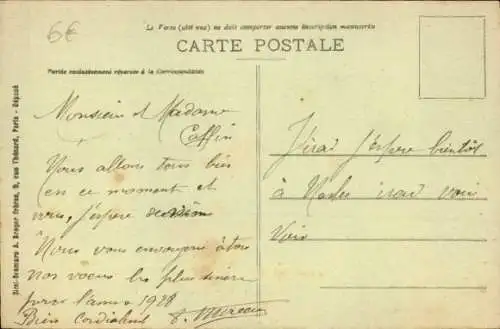 6€
Le Verso (côté vue) ne doit comporter aucune inscription manuscrite
CARTE POSTALE
Partie exclusivement réservée à la Correspondance
Monsieur et Madame
Coffin
Vous allons tous bien
en ce moment et
vous, j'espère
Nous vous envoyons à tous
nos voeux les plus
pour l'année 1928
Bien Cordialement
J'irai j'espère bientôt
à voir
Dist-Gramaro A. Breger Frères, 9, rue Thénard, Paris - Déposé